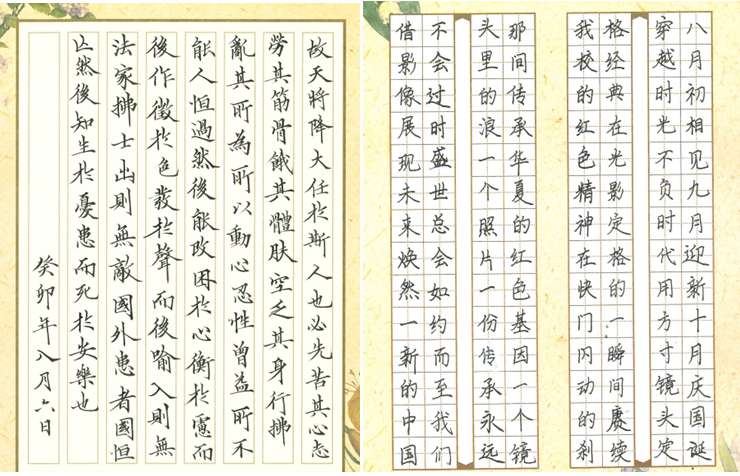 故天將降大任於斯人也必先苦其心志
勞其筋骨餓其體膚空乏其身行拂
亂其所為所以動心忍性曾益所不
能人恒過然後能改困於心衡於慮而
後作徵於色發於聲而後喻入則無
法家拂士出則無敵國外患者國恒
亡然後知生於憂患而死於安樂也
癸卯年八月六日
八月初相见九月迎新十月庆国诞
穿越时光不负时代用方寸镜头定
格经典在光影定格的一瞬间赓续
我校的红色精神在快门闪动的刹
那间传承华夏的红色基因一个镜
头里的浪一个照片一份传承永远
不会过时盛世总会如约而至我们
借影像展现未来焕然一新的中国